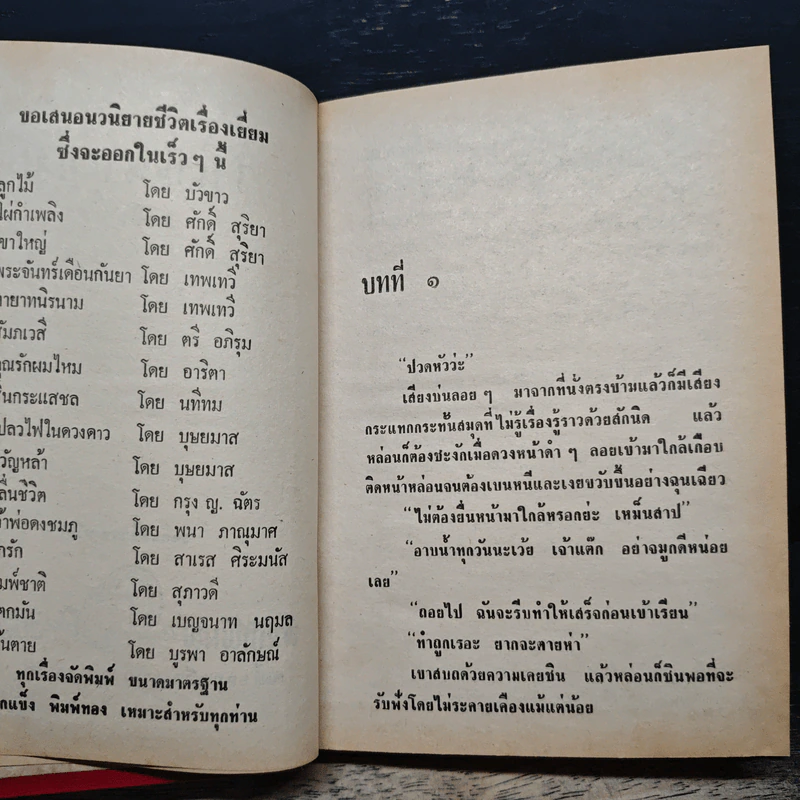 ขอเสนอนวนิยายชีวิตเรื่องเยี่ยม
ซึ่งจะออกในเร็ว ๆ นี้
ลูกไม้ โดย บัวขาว
ไผ่กำเพลิง โดย ศักดิ์ สุริยา
เขาใหญ่ โดย ศักดิ์ สุริยา
พระจันทร์เดือนกันยา โดย เทพเทวี
ทายาทนิรนาม โดย เทพเทวี
สัมภเวสี โดย ตรี อภิรุม
คุณรักผมไหม โดย อาริตา
กระแสชล โดย นทีทม
เปลวไฟในดวงดาว โดย บุษยมาส
ขวัญหล้า โดย บุษยมาส
ชีวิต โดย กรุง ญ. ฉัตร
เจ้าพ่อดงชมภู โดย พนา ภาณุมาศ
รัก โดย สาเรส ศิระมนัส
ชาติ โดย สุภาวดี
ตกมัน โดย เบญจนาท นฤมล
ตาย โดย บูรพา อาลักษณ์
ทุกเรื่องจัดพิมพ์ ขนาดมาตรฐาน
ปกแข็ง พิมพ์ทอง เหมาะสำหรับทุกท่าน
บทที่ ๑
“ปวดหัวว่ะ”
เสียงบ่นลอย ๆ มาจากที่นั่งตรงข้ามแล้วก็มีเสียง
กระแทกกระทั้นสมุดที่ไม่รู้เรื่องรู้ราวด้วยสักนิด แล้ว
หล่อนก็ต้องชะงักเมื่อดวงหน้าดำ ๆ ลอยเข้ามาใกล้เกือบ
ติดหน้าหล่อนจนต้องเบนหนีและเงยขวับขึ้นอย่างฉุนเฉียว
“ไม่ต้องยื่นหน้ามาใกล้หรอกย่ะ เหม็นสาป”
“อาบน้ำทุกวันนะเว้ย เจ้าแต๊ก อย่าจมูกดีหน่อย
เลย”
“ถอยไป ฉันจะรีบทำให้เสร็จก่อนเข้าเรียน”
“ทำถูกเรอะ ยากจะตายห่า”
เขาสบถด้วยความเคยชิน แล้วหล่อนก็ชินพอที่จะ
รับฟังโดยไม่ระคายเคืองแม้แต่น้อย